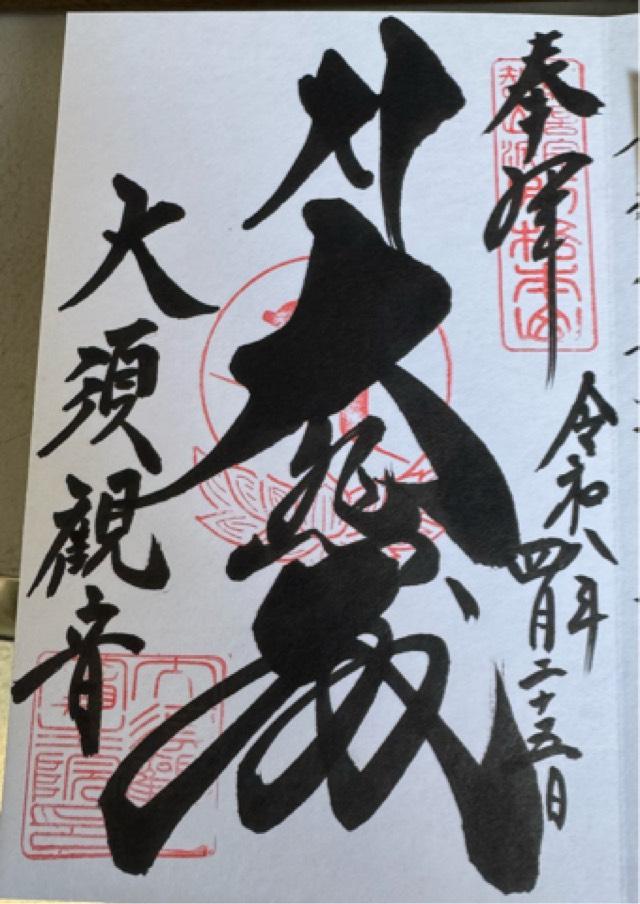 奉拝
令和八年四月二十五日
大悲殿
大須觀音